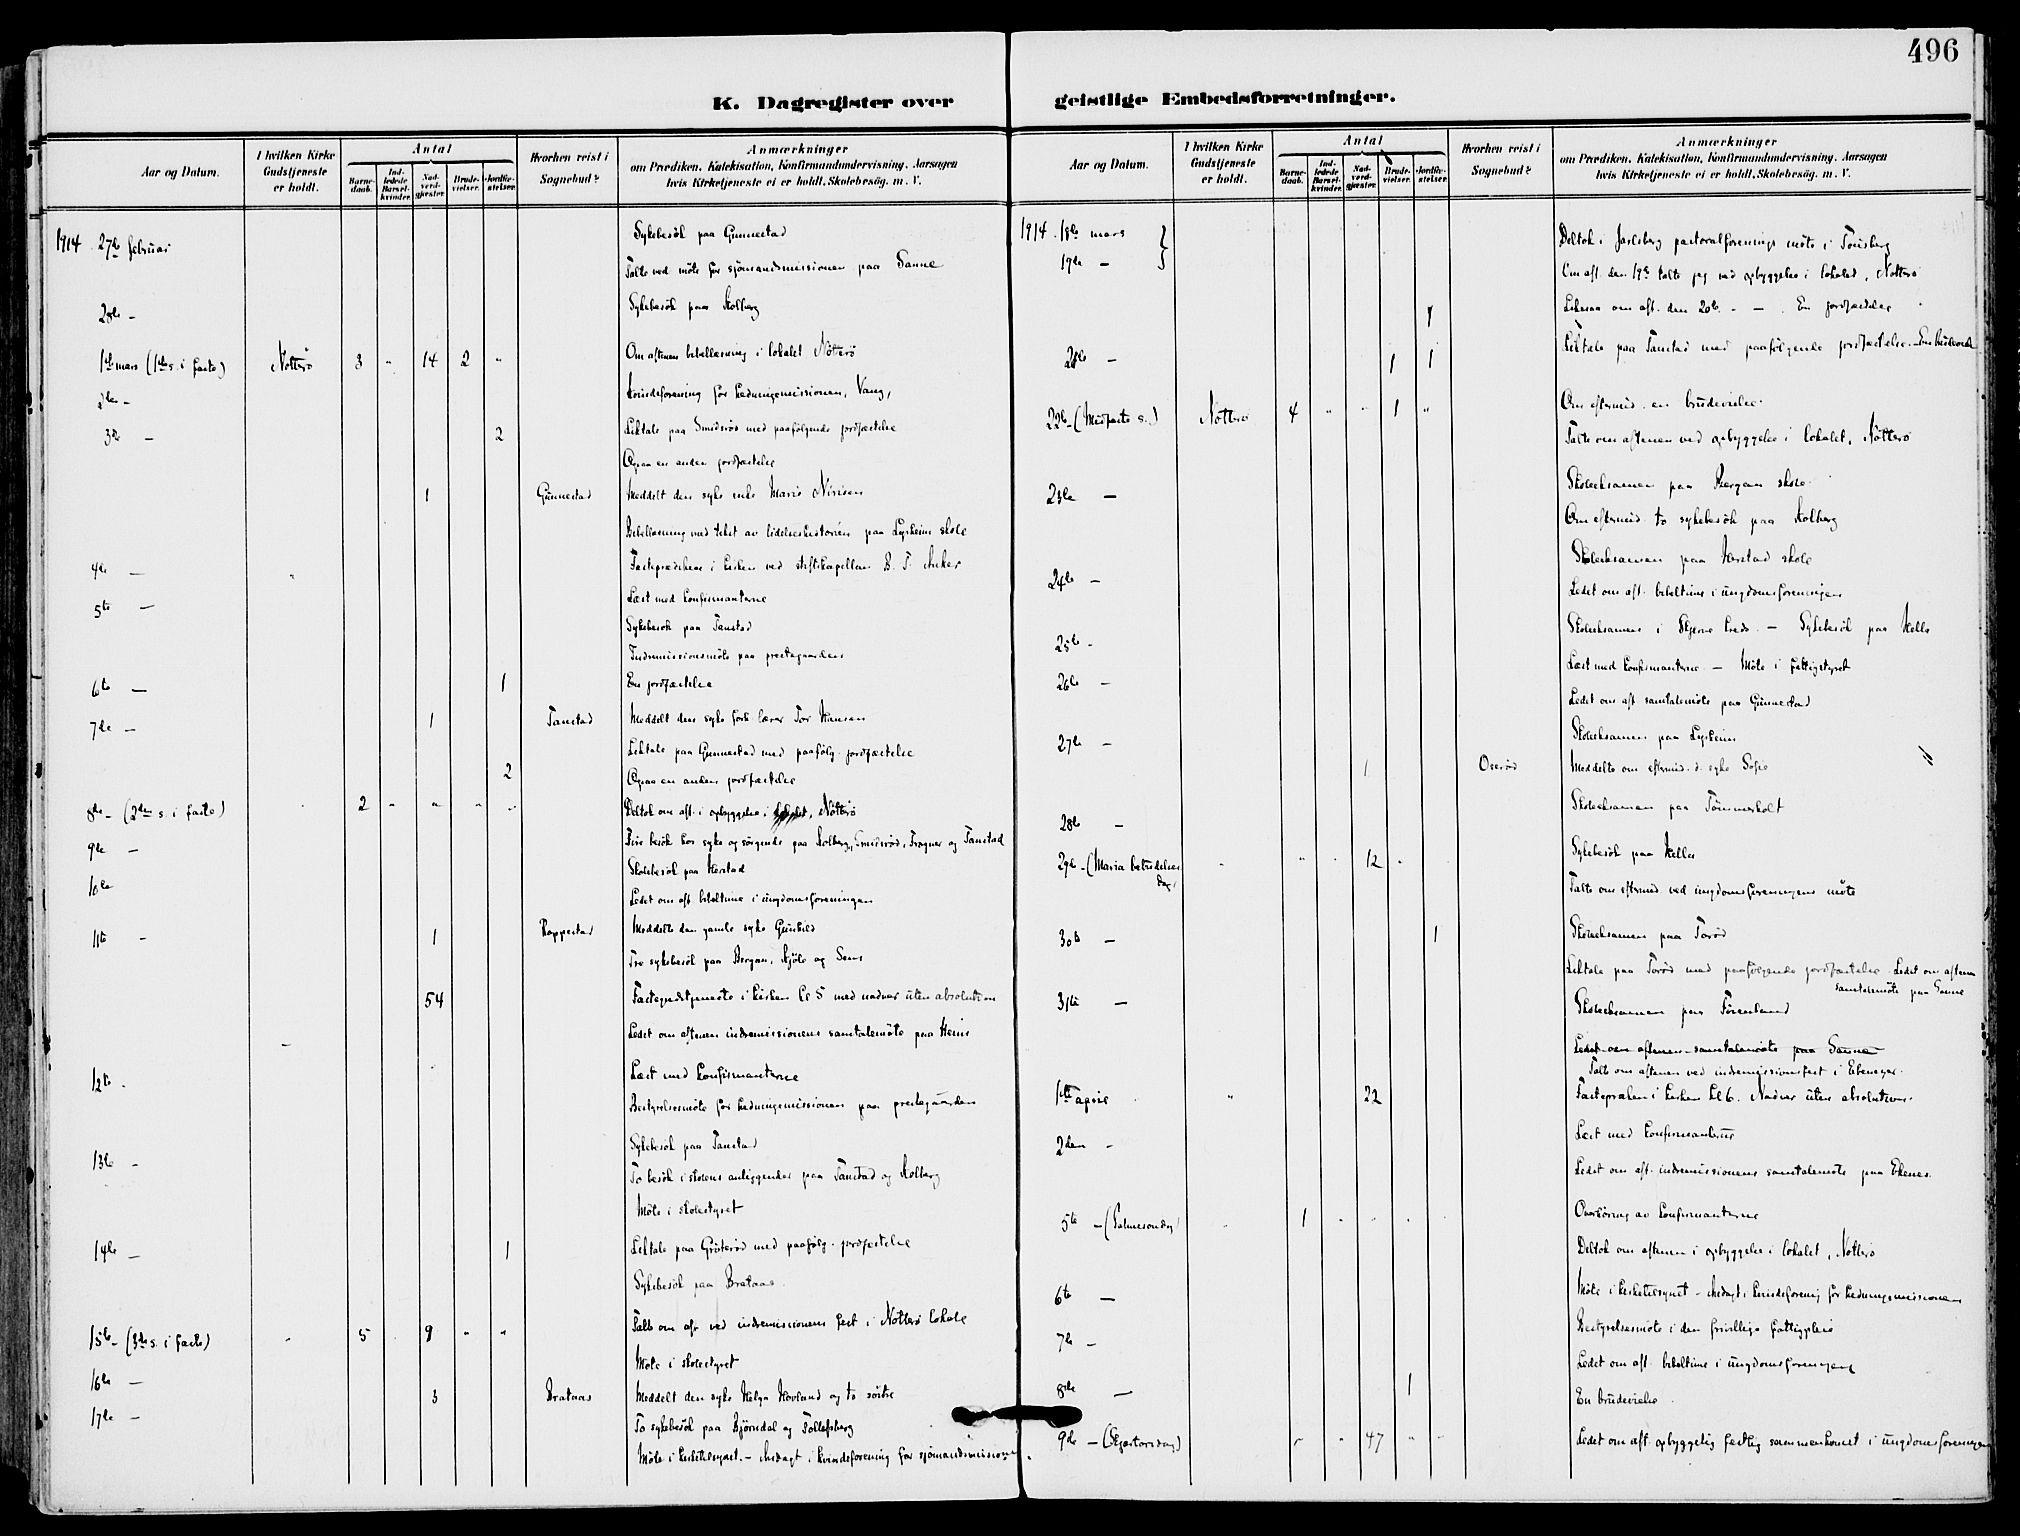 496
K. Dagregister over
geistlige Embedsforretninger.
Aar og Datum.
I hvilken Kirke Gudstjeneste er holdt.
Antal
Barne-daab.
Ind-ledede Barsel-kvinder.
Nad-verd-gjæster.
Brude-vielser.
Jordfæ-stelser.
Hvorhen reist i Sognebud?
Anmærkninger
om Prædiken, Katekisation, Konfirmandundervisning, Aarsagen
hvis Kirketjeneste ei er holdt, Skolebesøg, m. V.
1914. 27de februar Sykebesök paa Gunnestad
Talte ved möte for sjömandsmissionen paa Sanne
28de - Sykebesök paa Kolberg
1ste mars (1ste s. i faste) Nötterö 3 " 14 2 " Om aftenen bibellæsning i lokalet Nötterö
2den - Kvindeforening for hedningemissionen, Vang,
3die - 2 Liktale paa Smidsröd med paafölgende jordfæstelse
Ogsaa en anden jordfæstelse
1 Gunnestad Meddelt den syke enke Marie
Bibellæsning med tekst av lidelseshistorien paa Lysheim skole
4de - " Fasteprædiken i kirken ved stiftskapellan B. T. Anker
5te - Læst med konfirmanterne
Sykebesök paa Tanstad
Indremissionsmöte paa prestegaarden
6te - 1 En jordfæstelse
7de - 1 Tanstad Meddelt den syke forh. lærer Tor Hansen
Liktale paa Gunnestad med paafölg. jordfæstelse
2 Ogsaa en anden jordfæstelse
8de - (2den s. i faste) " 2 " " " " Deltok om aft. i opbyggelse i lokalet, Nötterö
9de - Fire besök hos syke og sörgende paa Kolberg, Smidsröd, Tragner og Tanstad
10de Skolebesök paa Herstad
Ledet om aft. bibeltime i ungdomsforeningen
11te - 1 Roppestad Meddelte den gamle syke Gunhild
Tre sykebesök paa Bergan, Kjöle og Sem
54 Fastegudstjeneste i kirken kl 5 med nadver uten absolution
- Ledet om aftenen indremissionens samtalemöte paa Hemis
12te - Læst med konfirmanterne
Bestyrelsesmöte for hedningemissionen paa prestegaarden
Sykebesök paa Tanstad
13de - To besök i skolens anliggender paa Tanstad og Kolberg
Möte i skolestyret
14de - 1 Liktale paa Gröteröd med paafölg. jordfæstelse
Sykebesök paa Brataas
Talte om aft. ved indremissionens fest i Nötterö lokale
15de - (3die s. i faste) " 5 " 9 " "
Möte i skolestyret
16de - 3 Brataas Meddelt den syke Helga Hovland og to söstre
17de - To sykebesök paa Björndal og Tollefsberg
Möte i kirketilsynet. - Andagt i kvindeforening for sjömandsmissionen.
Aar og Datum.
I hvilken Kirke Gudstjeneste er holdt.
Antal
Barne-daab.
Ind-ledede Barsel-kvinder.
Nad-verd-gjæster.
Brude-vielser.
Jordfæ-stelser.
Hvorhen reist i Sognebud?
Anmærkninger
om Prædiken, Katekisation, Konfirmandundervisning, Aarsagen
hvis Kirketjeneste ei er holdt, Skolebesøg, m. V.
1914. 18de mars Deltok i Jarlsberg pastoralforenings möte i Tönsberg
19de - Om aft. den 19de talte jeg ved opbyggelse i lokalet, Nötterö
1 Likesaa om aft. den 20de. - - En jordfæstelse
21de - 1 1 Liktale paa Tanstad med paafölgende jordfæstelse. - En brudevielse
22de - (Midfaste s.) Nötterö 4 " " 1 " Om eftermid. en brudevielse
Talte om aftenen ved opbyggelse i lokalet, Nötterö
23de - Skoleeksamen paa Bergan skole
Om eftermid. to sykebesök paa Kolberg
24de - Skoleeksamen paa Herstad skole
Ledet om aft. bibeltime i ungdomsforeningen
25de - Skoleeksamen i Skjerve kreds. - Sykebesök paa Hella
26de - Læst med konfirmanterne - Möte i fattigstyret
Ledet om aft samtalemöte paa Gunnestad
27de - Skoleeksamen paa Lysheim
1 Oseröd Meddelte om eftermid. d. syke Sofie
28de - Skoleeksamen paa Tömmerholt
29de - (Maria bebudelses dag) " " " 12 " " Sykebesök paa Hella
Talte om eftermid. ved ungdomsforeningens möte
30te - 1 Skoleeksamen paa Toröd
Liktale paa Toröd med paafölgende jordfæstelse. Ledet om aftenen
samtalemöte paa Sanne
31te - Skoleeksamen paa
Ledet om aftenen samtalemöte paa Sanne
Talte om aftenen ved indremissionsfest i Ebeneser.
1ste april " 22 Fastepræken i kirken kl 6. Nadver uten absolution.
2den - Læst med konfirmanterne
Ledet om aft. indremissionens samtalemöte paa Ekenes.
5te - (Palmesöndag) " 1 " " " " Overhöring av konfirmanterne
Deltok om aftenen i opbyggelse i lokalet, Nötterö
6te - Möte i kirketilsynet - Andagt i kvindeforening for hedningemissionen
7de - Bestyrelsesmöte i den frivillige fattigpleie
Ledet om aft. bibeltime i ungdomsforeningen
8de - 1 En brudevielse
9de - (Skjærtorsdag) " " 47 " " Ledet om aft. opbyggelig festlig sammenkomst i ungdomsforeningen